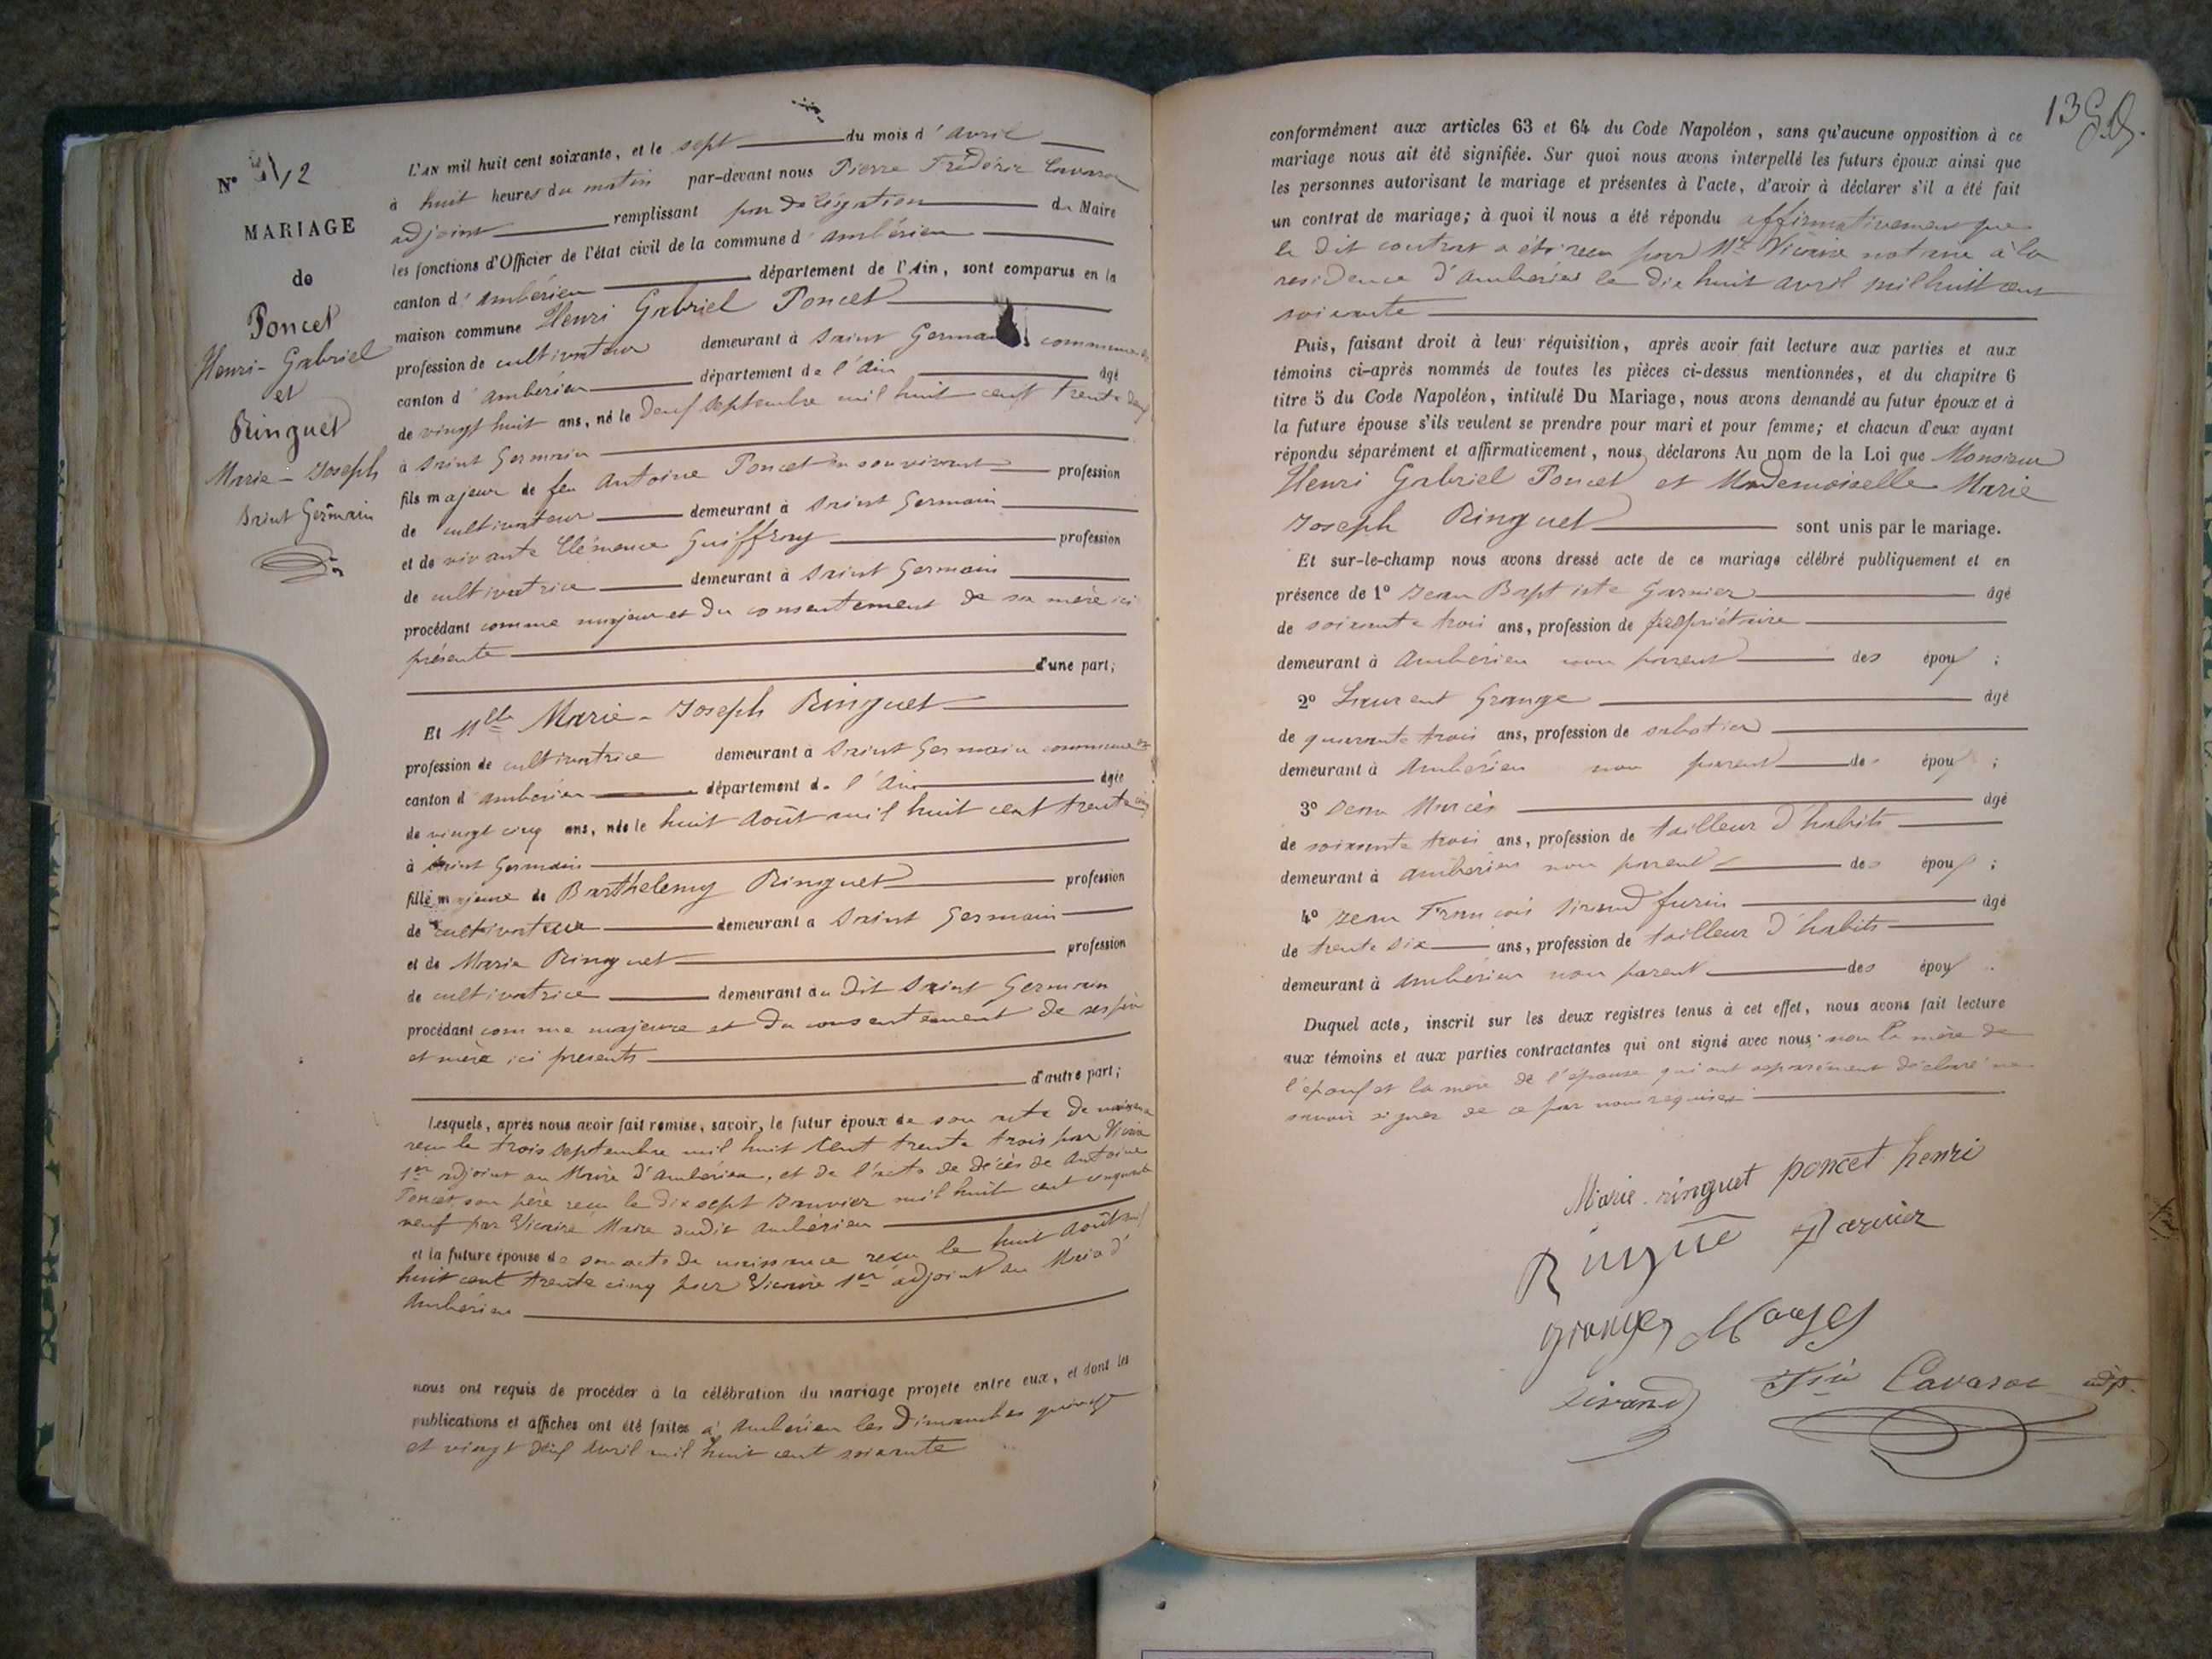 N° 12
MARIAGE
de
Poncet
Henri-Gabriel
et
Ringuet
Marie-Joseph
Saint Germain
L'AN mil huit cent soixante, et le sept du mois d'avril
à huit heures du matin par-devant nous Pierre Frédéric Cavaroc
adjoint remplissant par délégation du Maire
les fonctions d'Officier de l'état civil de la commune d'ambérieu
canton d'ambérieu département de l'Ain, sont comparus en la
maison commune Henri Gabriel Poncet
profession de cultivateur demeurant à Saint Germain commune
canton d'ambérieu département de l'Ain âgé
de vingt huit ans, né le deux septembre mil huit cent trente
à Saint Germain
fils majeur de feu Antoine Poncet en son vivant profession
de cultivateur demeurant à Saint Germain
et de vivante Clémence Guiffray profession
de cultivatrice demeurant à Saint Germain
procédant comme majeur et du consentement de sa mère ici
présente
d'une part;
Et Mlle Marie-Joseph Ringuet
profession de cultivatrice demeurant à Saint Germain commune
canton d'ambérieu département de l'Ain âgée
de vingt cinq ans, née le huit Août mil huit cent trente cinq
à Saint Germain
fille majeure de Barthelemy Ringuet profession
de cultivateur demeurant à Saint Germain
et de Marie Ringuet profession
de cultivatrice demeurant au dit Saint Germain
procédant comme majeure et du consentement de ses père
et mère ici présents
d'autre part;
Lesquels, après nous avoir fait remise, savoir, le futur époux de son acte de naissance
reçu le trois septembre mil huit cent trente trois par Vicaire
1er adjoint au Maire d'ambérieu, et de l'acte de décès de Antoine
Poncet son père reçu le dix sept Janvier mil huit cent cinquante
neuf par Vicaire Maire dudit ambérieu
et la future épouse de son acte de naissance reçu le huit Août mil
huit cent trente cinq par Vicaire 1er adjoint au Maire d'
Ambérieu
nous ont requis de procéder à la célébration du mariage projeté entre eux, et dont les
publications et affiches ont été faites à Ambérieu les Dimanches quinze
et vingt deux avril mil huit cent soixante
13
conformément aux articles 63 et 64 du Code Napoléon, sans qu'aucune opposition à ce
mariage nous ait été signifiée. Sur quoi nous avons interpellé les futurs époux ainsi que
les personnes autorisant le mariage et présentes à l'acte, d'avoir à déclarer s'il a été fait
un contrat de mariage; à quoi il nous a été répondu affirmativement que
le dit contrat a été reçu par Me Vicaire notaire à la
residence d'ambérieu le dix huit avril mil huit cent
soixante
Puis, faisant droit à leur réquisition, après avoir fait lecture aux parties et aux
témoins ci-après nommés de toutes les pièces ci-dessus mentionnées, et du chapitre 6
titre 5 du Code Napoléon, intitulé Du Mariage, nous avons demandé au futur époux et à
la future épouse s'ils veulent se prendre pour mari et pour femme; et chacun d'eux ayant
répondu séparément et affirmativement, nous déclarons Au nom de la Loi que Monsieur
Henri Gabriel Poncet et Mademoiselle Marie
Joseph Ringuet sont unis par le mariage.
Et sur-le-champ nous avons dressé acte de ce mariage célébré publiquement et en
présence de 1° Jean Baptiste Garnier âgé
de soixante trois ans, profession de propriétaire
demeurant à Ambérieu non parent des époux;
2° Laurent Grange âgé
de quarante trois ans, profession de sabotier
demeurant à Ambérieu non parent des époux;
3° Jean âgé
de soixante trois ans, profession de tailleur d'habits
demeurant à ambérieu non parent des époux;
4° Jean François Sirand furin âgé
de trente six ans, profession de tailleur d'habits
demeurant à ambérieu non parent des époux.
Duquel acte, inscrit sur les deux registres tenus à cet effet, nous avons fait lecture
aux témoins et aux parties contractantes qui ont signé avec nous, non la mère de
l'époux et la mère de l'épouse qui ont séparément déclaré ne
savoir signer de ce par nous requises
Marie ringuet poncet henri
Garnier
grange
Sirand Cavaroc adj.